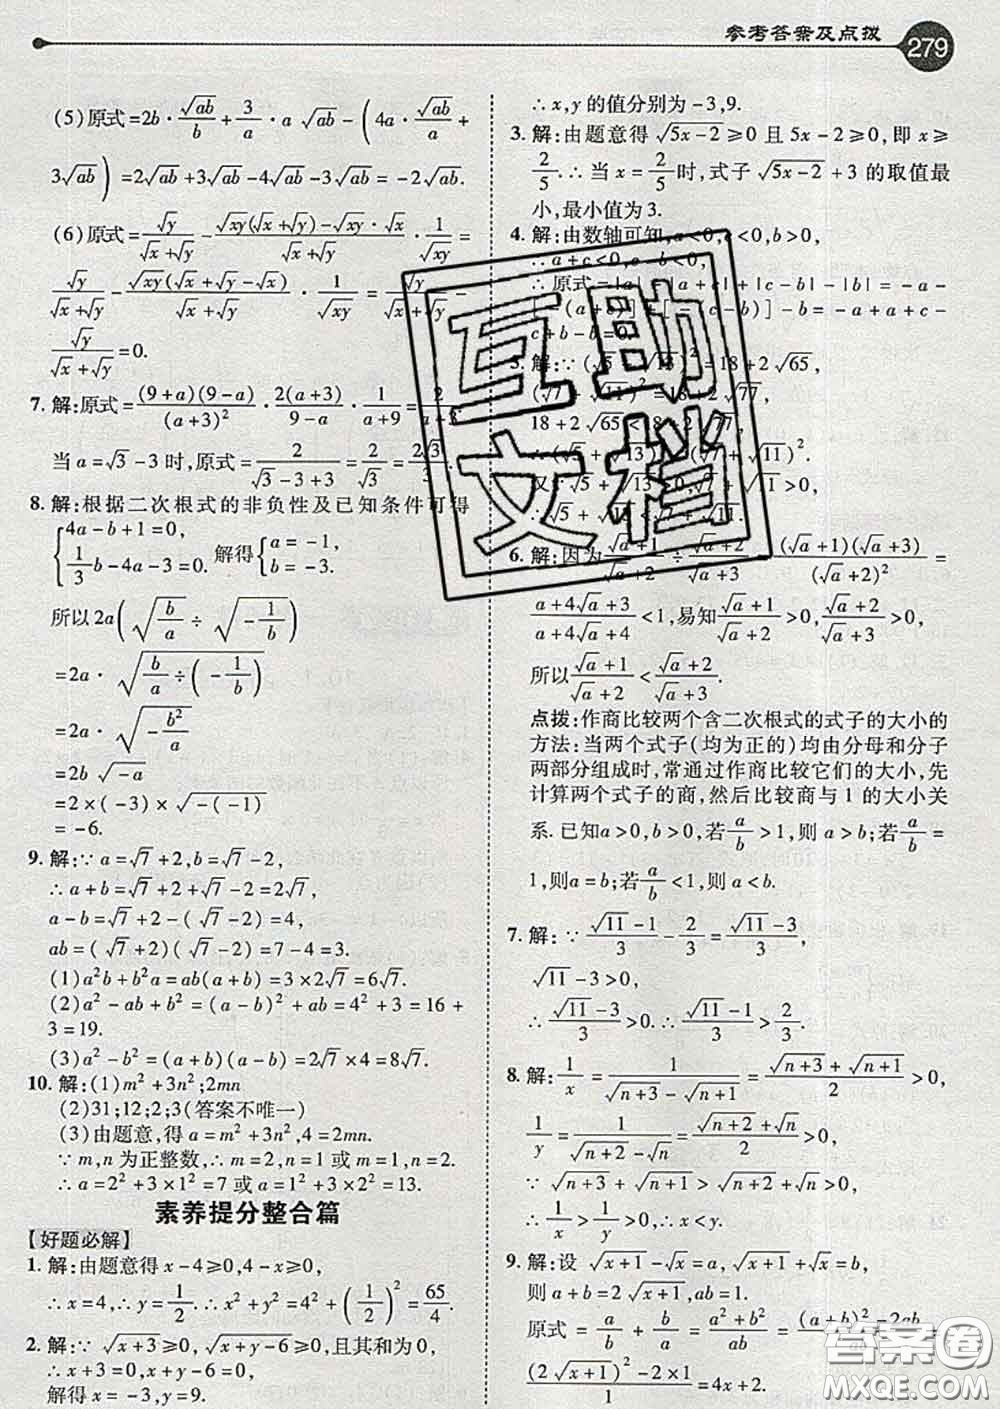 参考答案及点拨 279
(5)原式=2b·√(ab)/b+3/a·a√(ab)-(4a·√(ab)/a+
3√(ab))=2√(ab)+3√(ab)-4√(ab)-3√(ab)=-2√(ab).
(6)原式=√y/(√x+√y)-(√(xy)(√x+√y)-√(xy)·√x)/(√x+√y)·1/√(xy)=
√y/(√x+√y)-√(xy)(√x+√y-√x)/(√x+√y)·1/√(xy)=√y/(√x+√y)-
√y/(√x+√y)=0.
7. 解:原式=(9+a)(9-a)/(a+3)²·2(a+3)/(9-a)·1/(a+9)=2/(a+3).
当a=√3-3时,原式=2/(√3-3+3)=2/√3=2√3/3.
8. 解:根据二次根式的非负性及已知条件可得
{4a-b+1=0, 1/3b-4a-3=0. 解得{a=-1, b=-3.
所以2a(√(b/a)÷√(-1/b))
=2a·√(b/a÷(-1/b))
=2a·√(-b²/a)
=2b√(-a)
=2×(-3)×√(-(-1))
=-6.
9. 解:∵a=√7+2,b=√7-2,
∴a+b=√7+2+√7-2=2√7,
a-b=√7+2-(√7-2)=4,
ab=(√7+2)(√7-2)=7-4=3.
(1)a²b+b²a=ab(a+b)=3×2√7=6√7.
(2)a²-ab+b²=(a-b)²+ab=4²+3=16+
3=19.
(3)a²-b²=(a+b)(a-b)=2√7×4=8√7.
10. 解:(1)m²+3n²;2mn
(2)31;12;2;3(答案不唯一)
(3)由题意,得a=m²+3n²,4=2mn.
∵m,n为正整数,∴m=2,n=1或m=1,n=2.
∴a=2²+3×1²=7或a=1²+3×2²=13.
素养提分整合篇
【好题必解】
1. 解:由题意得x-4≥0,4-x≥0,
∴x=4,∴y=1/2.∴x²+y²=4²+(1/2)²=65/4.
2. 解:∵√(x+3)≥0,√(x+y-6)≥0,且其和为0,
∴x+3=0,x+y-6=0,
解得x=-3,y=9.
∴x,y的值分别为-3,9.
3. 解:由题意得√(5x-2)≥0且5x-2≥0,即x≥
2/5.∴当x=2/5时,式子√(5x-2)+3的取值最
小,最小值为3.
4. 解:由数轴可知,a<0,c<0,b>0,
∴a+c<0,c-b<0,
∴原式=|a|-|a+c|+|c-b|-|b|=-a-
[-(a+c)]+[-(c-b)]-b=-a+a+c-
c+b-b=0.
5. 解:∵(√5+√13)²=18+2√65,
(√7+√11)²=18+2√77,
18+2√65<18+2√77,
∴(√5+√13)²<(√7+√11)².
又∵√5+√13>0,√7+√11>0,
∴√5+√13<√7+√11.
6. 解:因为(√a+1)/(√a+2)÷(√a+2)/(√a+3)=(√a+1)(√a+3)/(√a+2)²=
(a+4√a+3)/(a+4√a+4)<1,易知(√a+1)/(√a+2)>0,(√a+2)/(√a+3)>0,
所以(√a+1)/(√a+2)<(√a+2)/(√a+3).
点拨:作商比较两个含二次根式的式子的大小的
方法:当两个式子(均为正的)均由分母和分子
两部分组成时,常通过作商比较它们的大小,先
计算两个式子的商,然后比较商与1的大小关
系.已知a>0,b>0,若a/b>1,则a>b;若a/b=
1,则a=b;若a/b<1,则a<b.
7. 解:∵(√11-1)/3-2/3=(√11-3)/3,
√11-3>0,
∴(√11-3)/3>0.∴(√11-1)/3>2/3.
8. 解:1/x=1/(√(n+3)-√(n+1))=(√(n+3)+√(n+1))/2>0,
1/y=1/(√(n+2)-√n)=(√(n+2)+√n)/2>0,
∵(√(n+3)+√(n+1))/2>(√(n+2)+√n)/2,
∴1/x>1/y>0,∴x<y.
9. 解:设√(x+1)-√x=a,√(x+1)+√x=b,
则a+b=2√(x+1),ab=1.
原式=a/b+b/a=(a²+b²)/ab=((a+b)²-2ab)/ab=
((2√(x+1))²-2×1)/1=4x+2.
互助
文档
答案圈
MXQE.COM